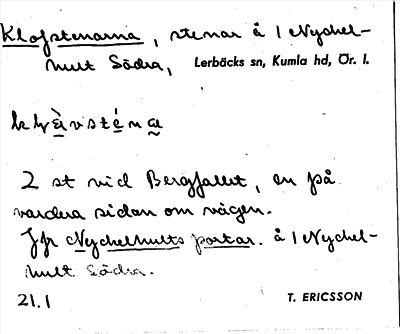 Klofstenarna, stenar å 1 Nyckel-
hult Södra, Lerbäcks sn, Kumla hd, Ör. l.
2 st vid Bergfallet, en på
vardera sidan om vägen.
Jfr Nyckelhults portar. å 1 Nyckel-
hult Södra.
21.1 T. ERICSSON